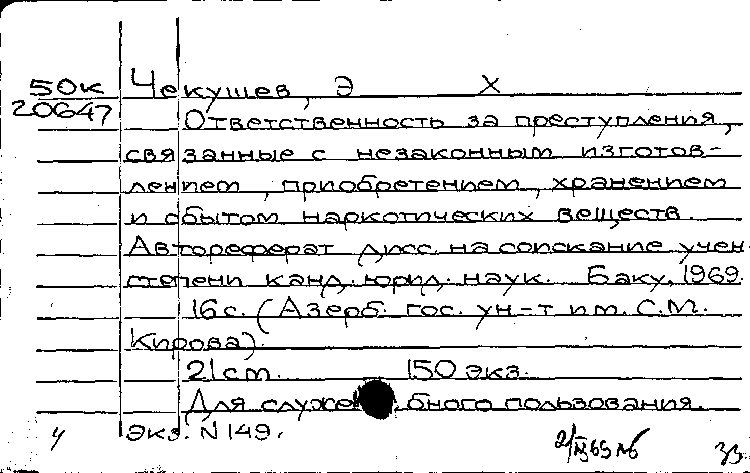 50к Чекушев, Э Х
20647 Ответственность за преступления,
связанные с незаконным изготов-
лением, приобретением, хранением
и сбытом наркотических веществ.
Автореферат дисс. на соискание учен.
степени канд. юрид. наук. Баку, 1969.
16с. (Азерб. гос. ун-т им. С.М.
Кирова).
21cm. 150 экз.
Для служебного пользования.
Экз. N 149.
33